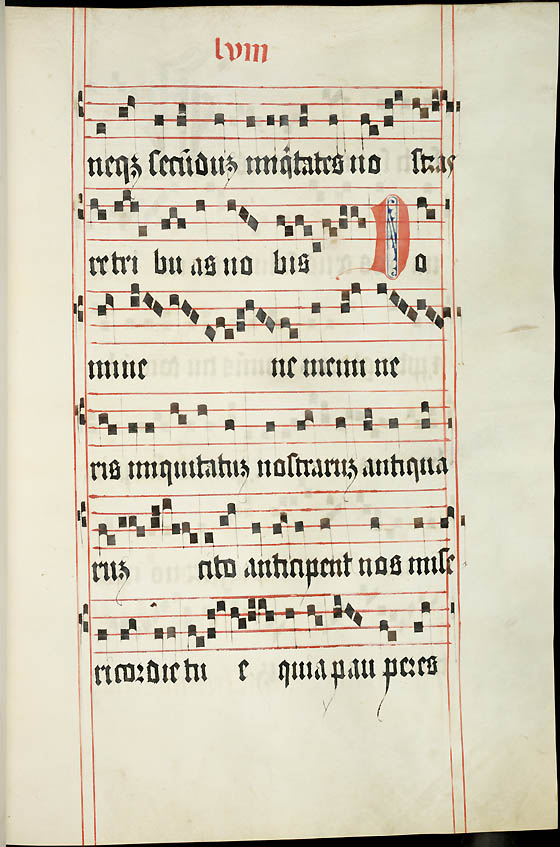 lviii
neqꝫ secūduꝫ iniq̄tates no stras
retri bu as no bis Do
mine ne memi ne
ris iniquitatuꝫ nostraruꝫ antiqua
ruꝫ cito anticipent nos mise
ricordie tu e quia pau peres